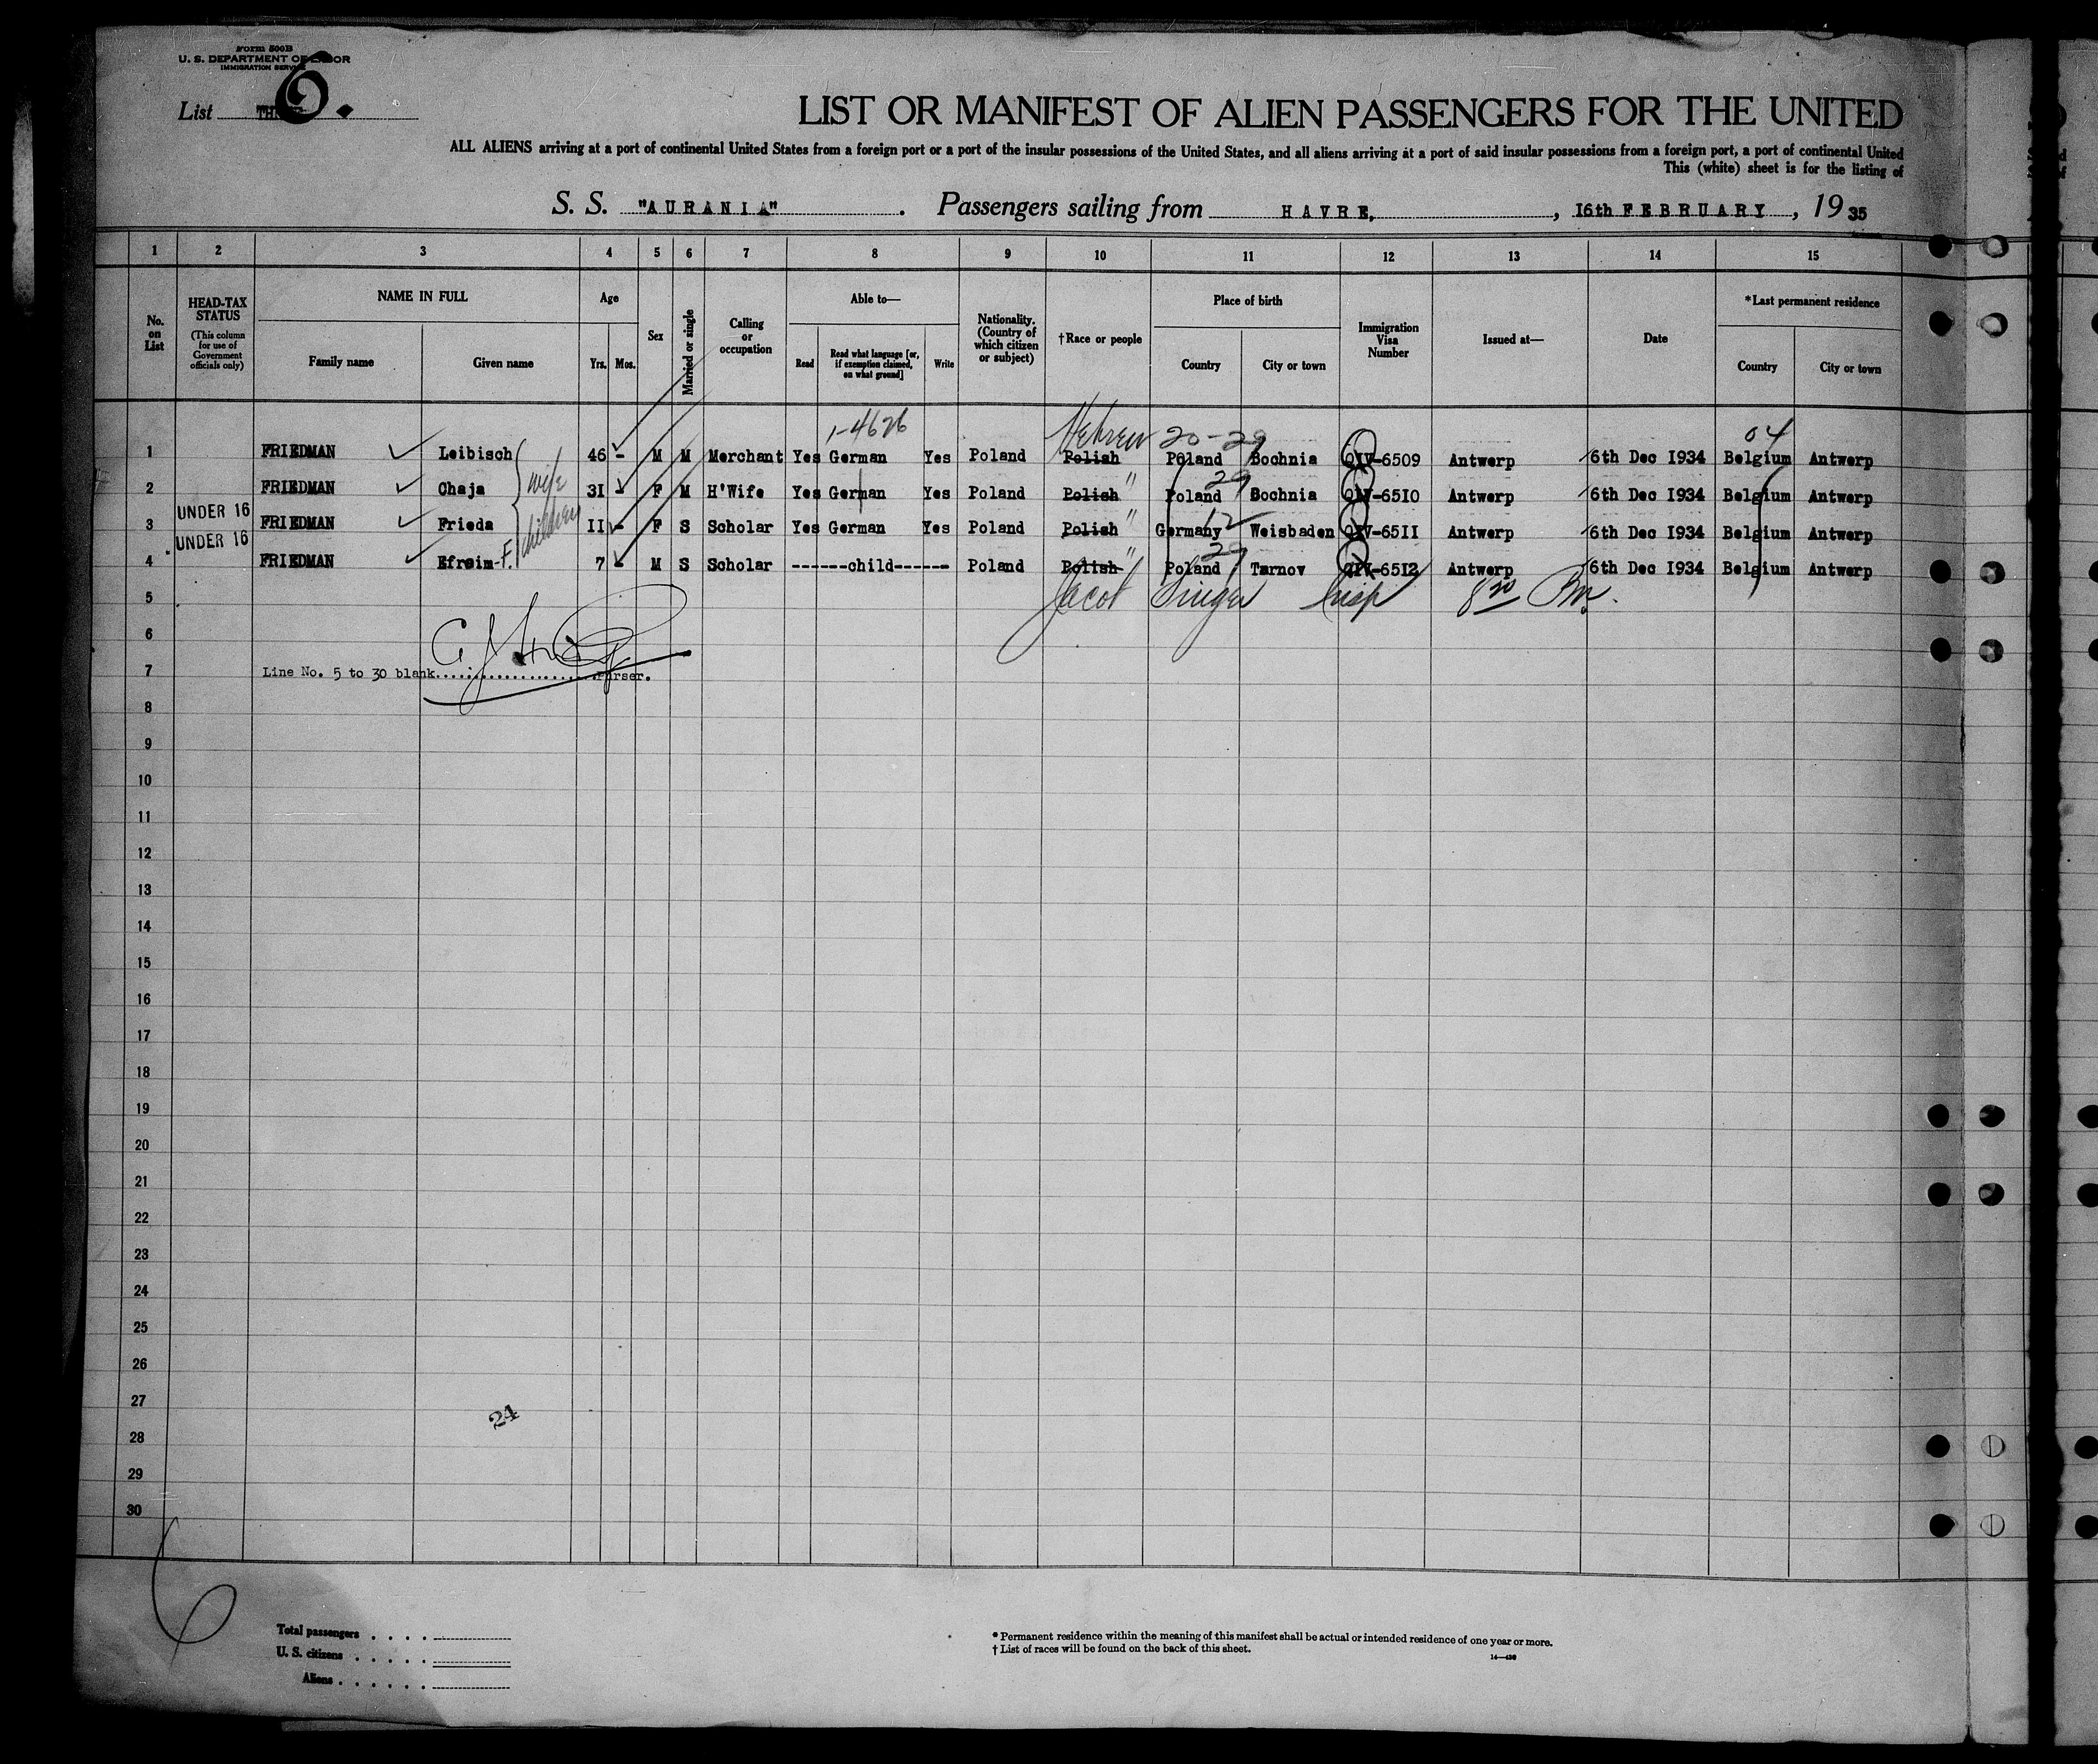 Form 500B
U. S. DEPARTMENT OF LABOR
IMMIGRATION SERVICE
List 6.
LIST OR MANIFEST OF ALIEN PASSENGERS FOR THE UNITED
ALL ALIENS arriving at a port of continental United States from a foreign port or a port of the insular possessions of the United States, and all aliens arriving at a port of said insular possessions from a foreign port, a port of continental United
This (white) sheet is for the listing of
S. S. "AURANIA". Passengers sailing from HAVRE, , 16th FEBRUARY, 19 35
1 2 3 4 5 6 7 8 9 10 11 12 13 14 15
No. on List
HEAD-TAX STATUS
(This column for use of Government officials only)
NAME IN FULL
Family name Given name
Age
Yrs. Mos.
Sex
Married or single
Calling or occupation
Able to—
Read
Read what language [or, if exemption claimed, on what ground]
Write
Nationality. (Country of which citizen or subject)
†Race or people
Place of birth
Country City or town
Immigration Visa Number
Issued at—
Date
*Last permanent residence
Country City or town
1-4626 Hebrew 20-29 04
1 FRIEDMAN Leibisch 46 - M M Merchant Yes German Yes Poland Polish Poland Bochnia QIV-6509 Antwerp 6th Dec I934 Belgium Antwerp
wife 29
2 FRIEDMAN Chaja 3I - F M H'Wife Yes German Yes Poland Polish " Poland Bochnia QIV-65I0 Antwerp 6th Dec I934 Belgium Antwerp
UNDER 16 children 12
3 FRIEDMAN Frieda II - F S Scholar Yes German Yes Poland Polish " Germany Weisbaden QIV-65II Antwerp 6th Dec I934 Belgium Antwerp
UNDER 16 29
4 FRIEDMAN Efroim-F. 7 - M S Scholar ------child------ Poland Polish " Poland Tarnov QIV-65I2 Antwerp 6th Dec I934 Belgium Antwerp
5 Jacob Singer Insp 8 30 Pm.
6
7 Line No. 5 to 30 blank......................Purser.
8
9
10
11
12
13
14
15
16
17
18
19
20
21
22
23
24
25
26
27
24
28
29
30
6
Total passengers . . . .
U. S. citizens . . . . .
Aliens . . . . . .
* Permanent residence within the meaning of this manifest shall be actual or intended residence of one year or more.
† List of races will be found on the back of this sheet.
14—430